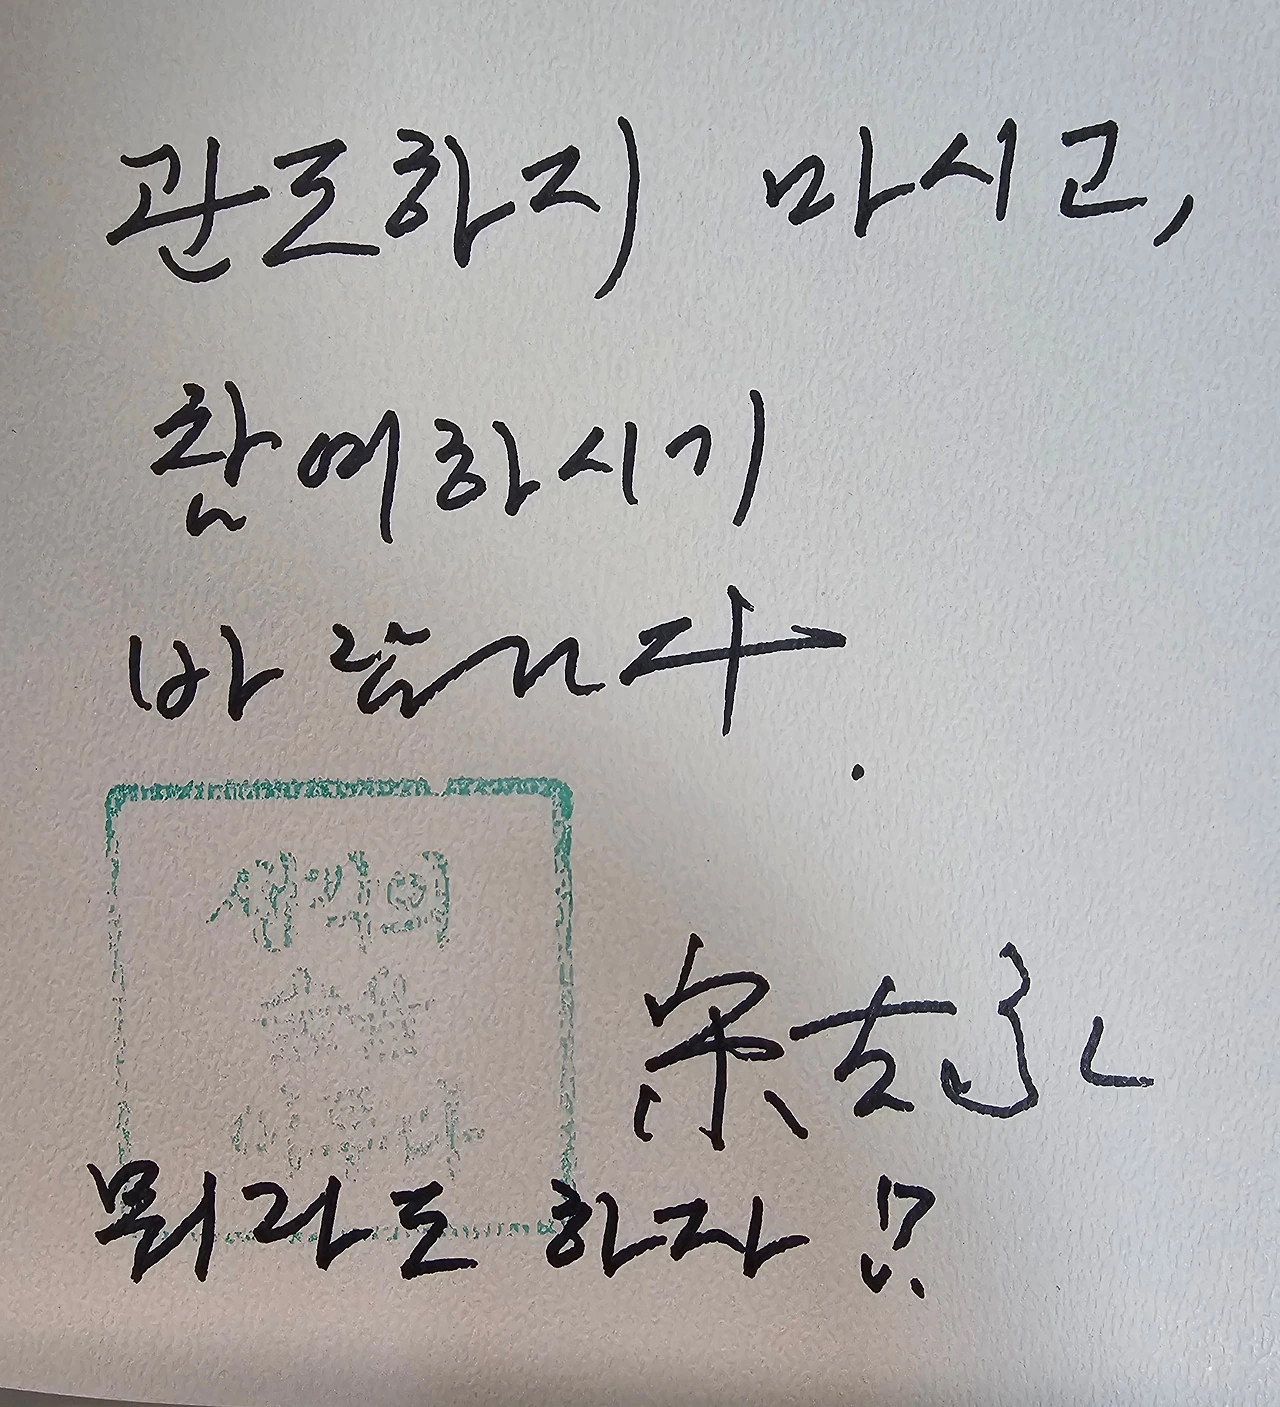 관조하지 마시고,
참여하시기
바랍니다.
새벽의
宋
뭐라도 하자 !?